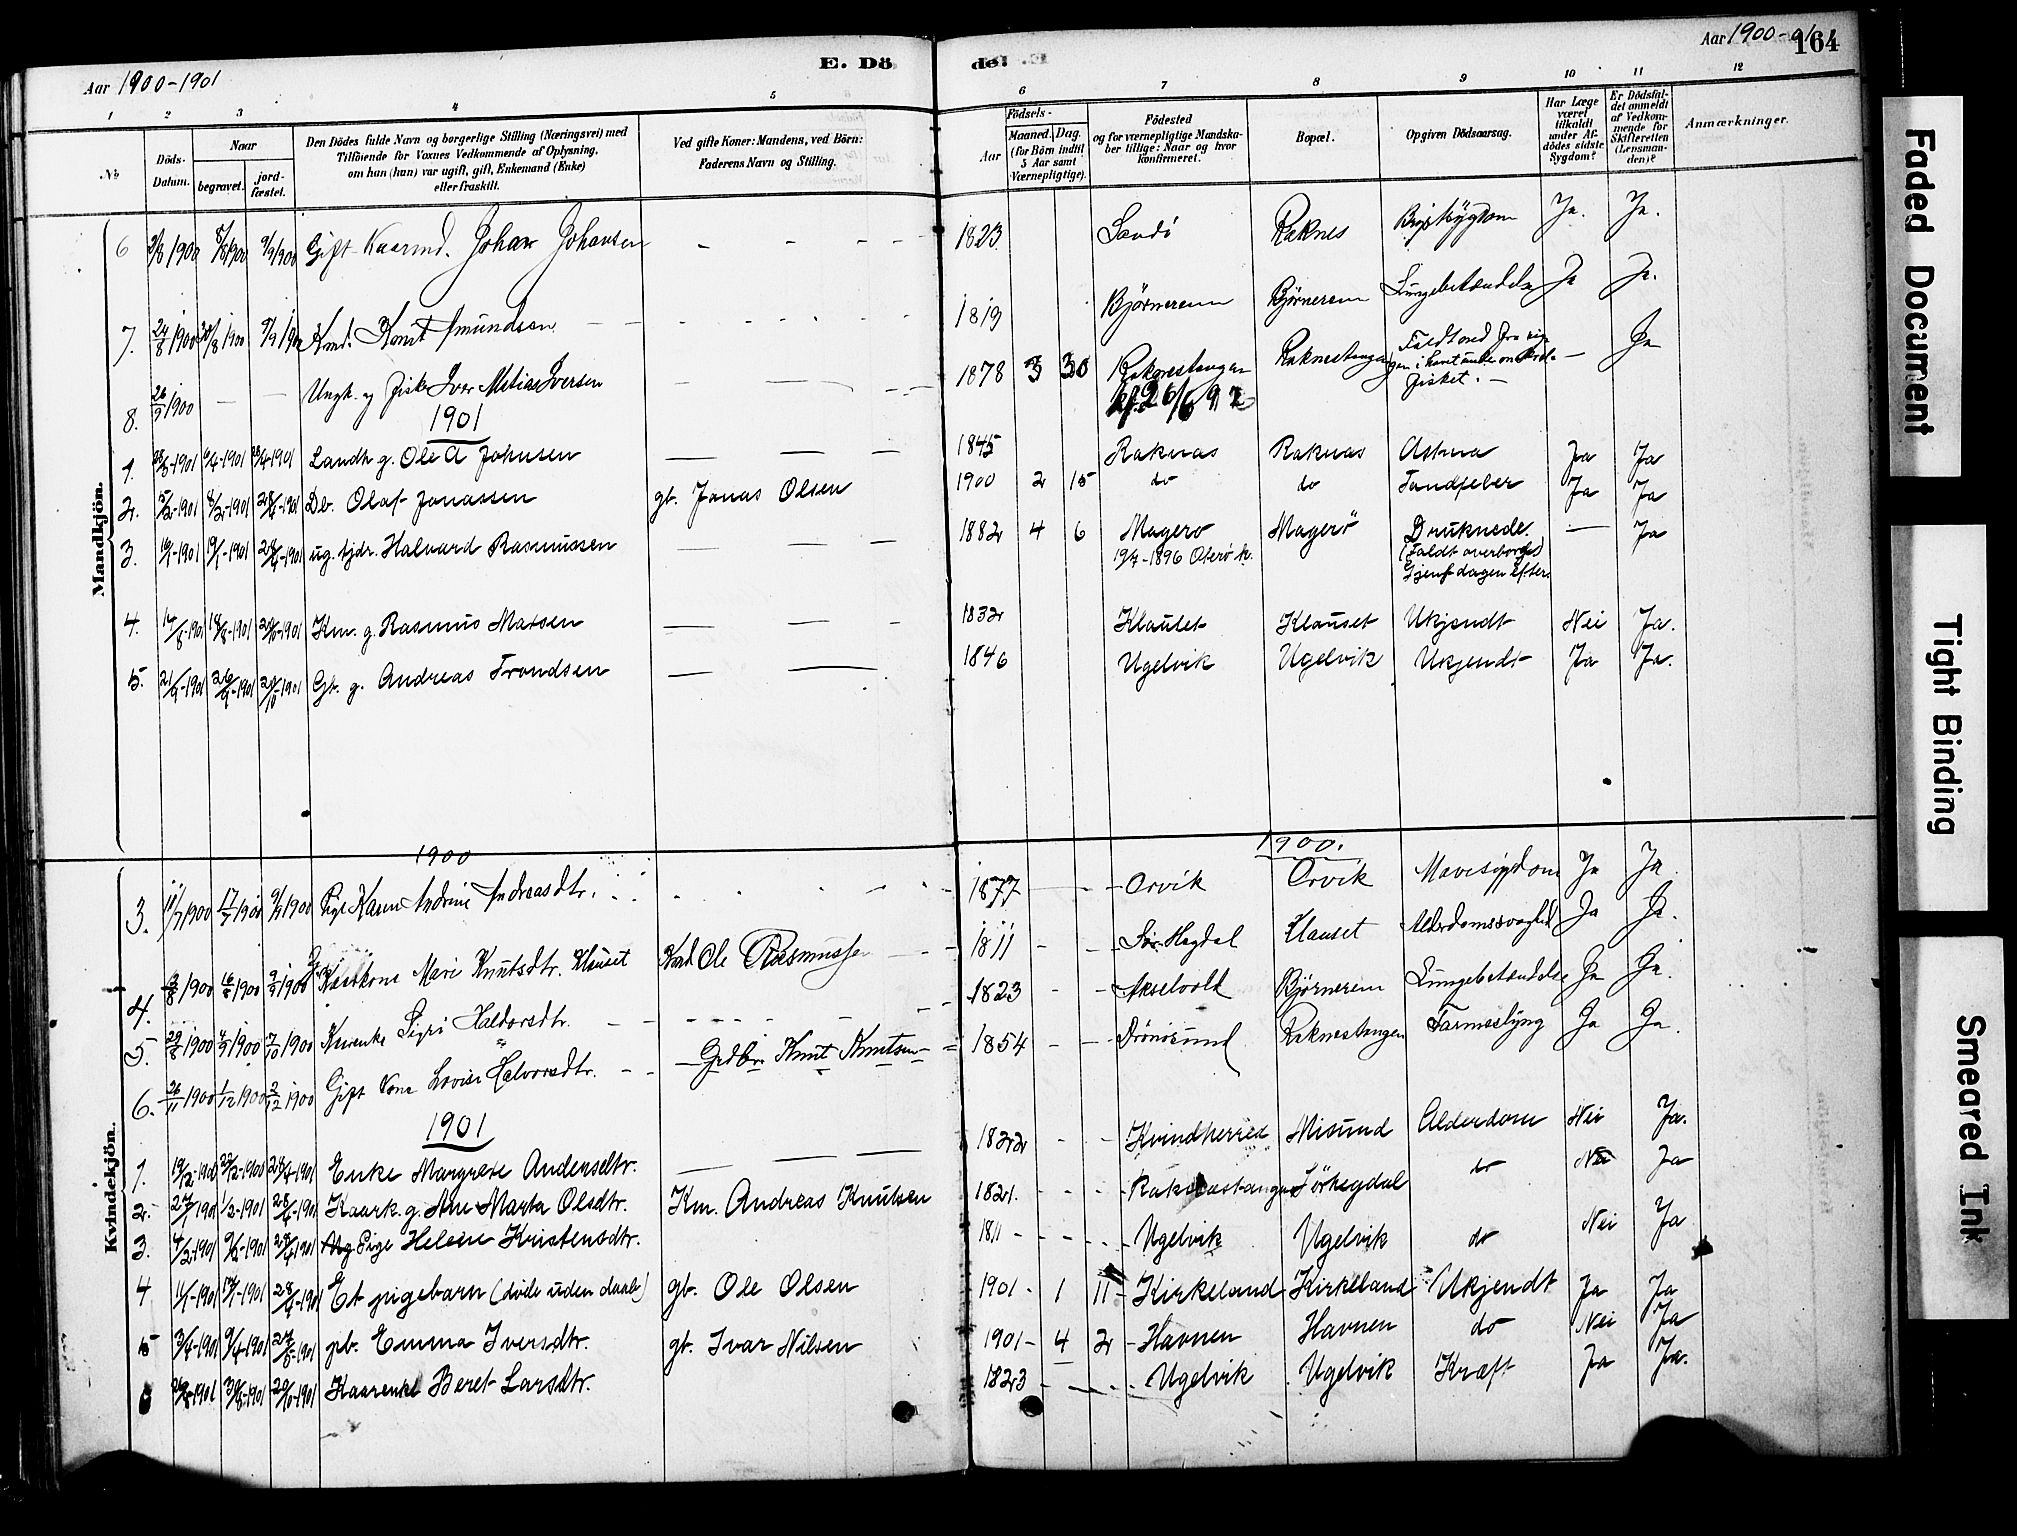 Aar 1900-1901
E. Dö
de. E
Aar 1900-01
164
1 2 3 4 5 6 7 8 9 10 11 12
No
Döds-Datum.
Naar
begravet.
jord-fæstet.
Den Dödes fulde Navn og borgerlige Stilling (Næringsvei) med
Tilföiende for Voxnes Vedkommende af Oplysning,
om han (hun) var ugift, gift, Enkemand (Enke)
eller fraskilt.
Ved gifte Koner: Mandens, ved Börn:
Faderens Navn og Stilling.
Födsels-
Aar
Maaned. Dag.
(for Börn indtil
5 Aar samt
Værnepligtige).
Födested
og for værnepligtige Mandska-
ber tillige: Naar og hvor
konfirmeret.
Bopæl.
Opgiven Dödsaarsag.
Har Læge
været
tilkaldt
under Af-
dödes sidste
Sygdom?
Er Dödsfal-
det anmeldt
af Vedkom-
mende for
Skifteretten
(Lensman-
den)?
Anmærkninger.
Mandkjön.
6 9/9 1900 Gift Kaarmd. Johan Johansen - - - - 1823 Sandö Raknes Brystsygdom Ja. Ja.
7. 24/8 1900 30/8 1900 9/9 1900 Kmd. Knut Amundsen 1819 Björnerem Björnerem Lungebetændelse Ja Ja.
8. 26/9 1900 — — Ungk. og Fisk Iver Matias Iversen 1878 3 30 Raknestangen Raknestangen Faldt ned fra
Fisket. — — Ja
kf. 26/6 92
1901
1. 6/4-1901 28/4-1901 Landh g. Ole A Johnsen — — — 1845 Raknas Raknas Astma Ja Ja
2. 5/2-1901 8/2-1901 28/4-1901 Db. Olaf Jonassen gb. Jonas Olsen 1900 2 15 do do Tandfeber Ja Ja
3. 19/1-1901 28/4-1901 ug. tjdr. Halvard Rasmussen — — — 1882 4 6 Magerö Magerö Druknede. — Ja
19/4-1896 Oterö k. (Faldt overbord)
Gjenf dagen efter.
4. 18/8-1901 Km. g. Rasmus Matsen — — — 1832 Klauset Klauset Ukjendt Nei Ja.
5. 21/9-1901 26/9-1901 20/10-1901 Gb. g. Andreas Trondsen — — 1846 Ugelvik Ugelvik Ukjendt Ja Ja.
Kvindekjön.
1900 1900.
3. 11/7 1900 17/7 1900 9/9 1900 Pige Karen Andrine Andreasdtr. 1877 Orvik Orvik Mavesygdom Ja Ja.
4. 16/8 1900 9/9 1900 Kaarkone Mari Knutsdtr. Klauset Kard Ole Rasmussen 1811 Sör Hagdal Klauset Alderdomssvaghed Ja Ja.
5. 29/8 1900 4/9 1900 7/10 1900 Kaarenke Sigri Haldorsdtr. 1823 Akselvold Björnerem Lungebetændelse Ja Ja.
6. 26/11 1900 1/12 1900 2/12 1900 Gift Kone Lovise Halvorsdtr. Gdbr Knut Knutsen 1854 Drönesund Raknestangen Tarmeslyng Ja Ja.
1901
1. 19/2-1900 28/4-1901 Enke Margrete Andersdtr. — — — 1822 Kvindherred Misund Alderdom Nei Ja.
2. 27/1 1901 1/2-1901 28/4-1901 Kaark. g. Ane Marta Olsdtr. Km. Andreas Knutsen 1821. Raknestangen Sörhegdal do Nei Ja
3. 4/2-1901 9/2-1901 28/4 1901 Pige Helene Kristensdtr. 1811 Ugelvik Ugelvik do Nei Ja
4 11/1-1901 28/4-1901 Et pigebarn (döde uden daab) gb. Ole Olsen 1901 1 11 Kirkeland Kirkeland Ukjendt Ja Ja
5 3/4-1901 9/4-1901 pb. Emma Iversdtr. gb. Ivar Nilsen 1901 4 2 Havnen Havnen do Nei Ja
6 20/10-1901 Kaarenke Beret Larsdtr. 1823 Ugelvik Ugelvik Kræft Ja Ja.
Faded Document
Tight Binding
Smeared Ink